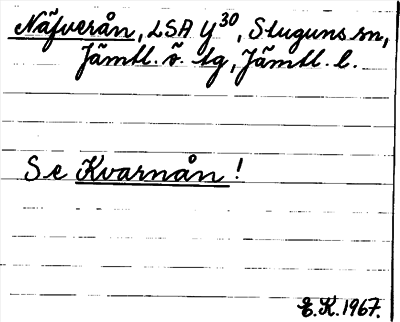 Näfverån, LSA Y30, Stuguns sn,
Jämtl. ö. tg, Jämtl. l.
Se Kvarnån!
E.K. 1967.